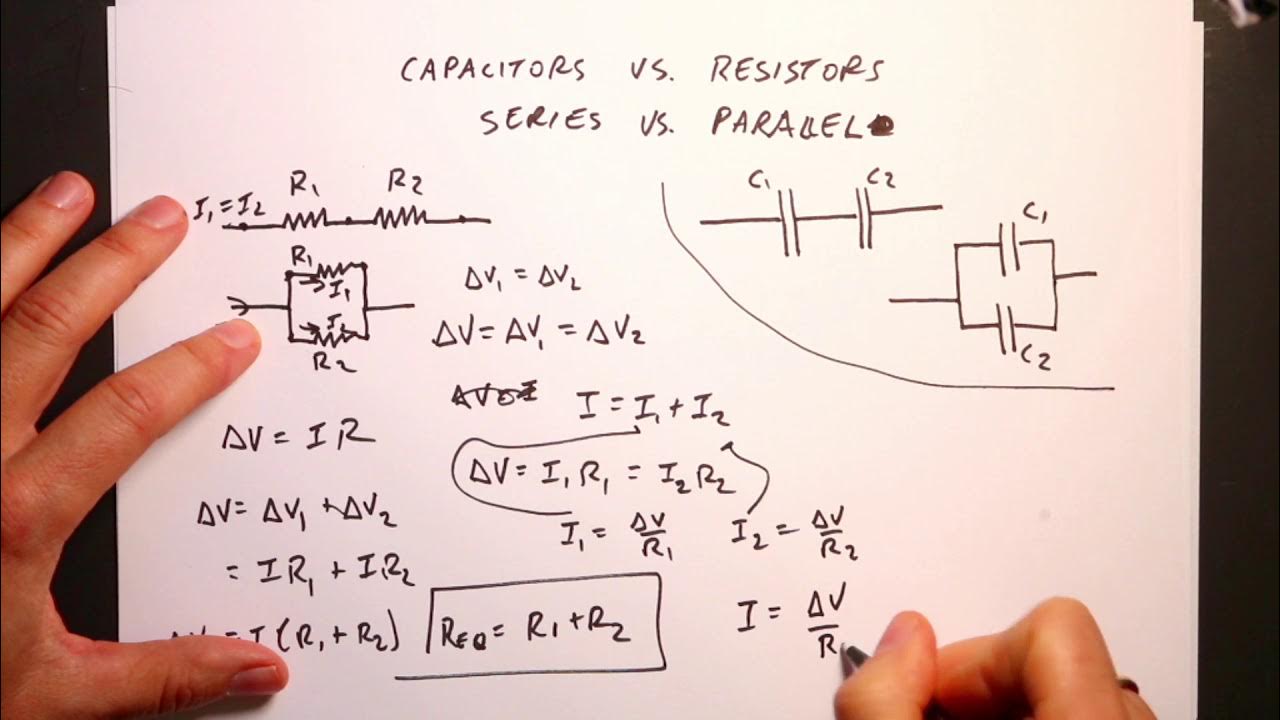 CAPACITORS VS. RESISTORS
SERIES VS. PARALLEL
I₁ = I₂
R₁ R₂
R₁
I₁
R₂
ΔV₁ = ΔV₂
ΔV = ΔV₁ = ΔV₂
I = I₁ + I₂
ΔV = I₁R₁ = I₂R₂
I₁ = ΔV/R₁ I₂ = ΔV/R₂
I = ΔV/R
ΔV = IR
ΔV = ΔV₁ + ΔV₂
= IR₁ + IR₂
= I(R₁ + R₂)
REQ = R₁ + R₂
C₁ C₂
C₁
C₂